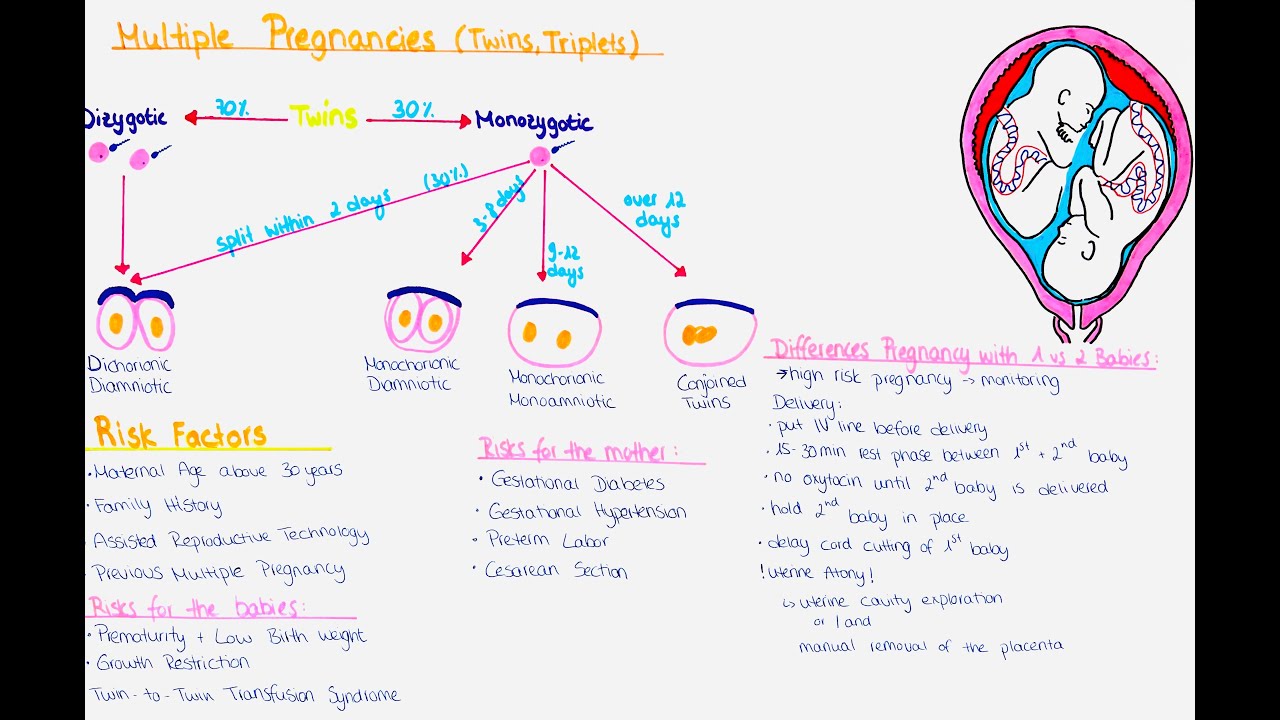 Multiple Pregnancies (Twins, Triplets)
Dizygotic
70%
Twins
30%
Monozygotic
split within 2 days (30%)
3-8 days
9-12
days
over 12
days
Dichorionic
Diamniotic
Monochorionic
Diamniotic
Monochorionic
Monoamniotic
Conjoined
Twins
Risk Factors
• Maternal Age above 30 years
• Family History
Assisted Reproductive Technology
Previous Multiple Pregnancy
Risks for the babies:
• Prematurity + Low Birth weight
• Growth Restriction
Twin-to-Twin Transfusion Syndrome
Risks for the mother:
• Gestational Diabetes
• Gestational Hypertension
• Preterm Labor
• Cesarean Section
Differences Pregnancy with 1 vs 2 Babies:
→ high risk pregnancy → monitoring
Delivery:
• put IV line before delivery
• 15-30min rest phase between 1st + 2nd baby
• no oxytocin until 2nd baby is delivered
• hold 2nd baby in place
• delay cord cutting of 1st baby
! Uterine Atony!
↳ uterine cavity exploration
or / and
manual removal of the placenta